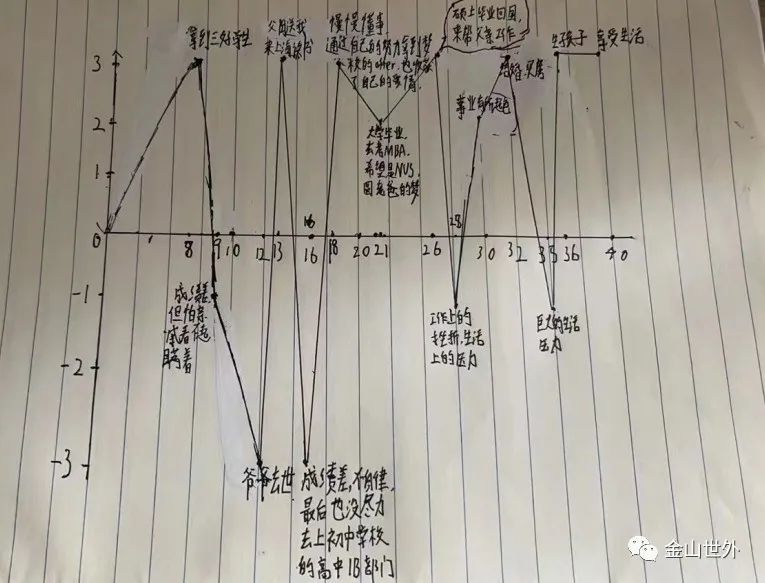 拿到三好学生
父母送我
来上海读书
慢慢懂事
通过自己的努力拿到梦
校的offer,也收获
了自己的爱情.
硕士毕业回国,
来帮父亲工作
结婚,买房
生孩子 享受生活
事业有所起色
大学毕业,
去考MBA.
希望是NUS,
圆爸爸的梦
3
2
1
0
-1
-2
-3
8 9 10 12 13 16 18 20 21 26 28 30 32 35 36 40
16
成绩差
但怕家
瞒着
爷爷去世
成绩差,不自律,
最后也没尽力
去上初中学校
的高中IB部门
工作上的
挫折,生活
上的压力
巨大的生活
压力
金山世外